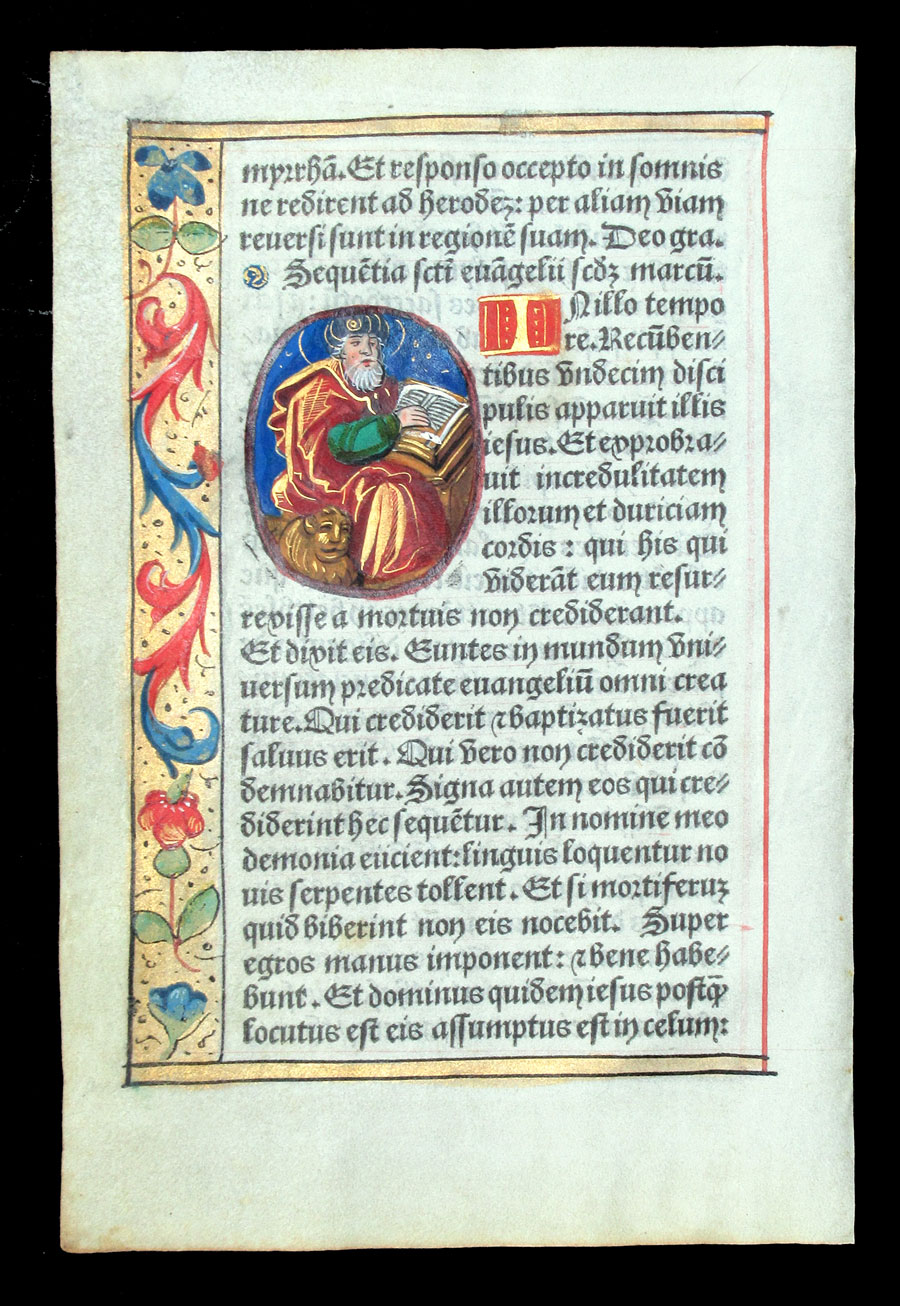 myrrhā. Et responso occepto in somnis
ne redirent ad herodeꝫ: per aliam viam
reuersi sunt in regionē suam. Deo gra.
Sequētia sctī euāgelii scdꝫ marcū.
IN illo tempo
re. Recūben⸗
tibus vndecim disci
pulis apparuit illis
iesus. Et exprobra⸗
uit incredulitatem
illorum et duriciam
cordis: qui his qui
viderāt eum resur⸗
rexisse a mortuis non crediderant.
Et dixit eis. Euntes in mundum vni⸗
uersum predicate euangeliū omni crea
ture. Qui crediderit ⁊ baptizatus fuerit
saluus erit. Qui vero non crediderit cō
demnabitur. Signa autem eos qui cre⸗
diderint hec sequētur. In nomine meo
demonia eiicient: linguis loquentur no
uis serpentes tollent. Et si mortiferuꝫ
quid biberint non eis nocebit. Super
egros manus imponent: ⁊ bene habe⸗
bunt. Et dominus quidem iesus postꝙ̄
locutus est eis assumptus est in celum: